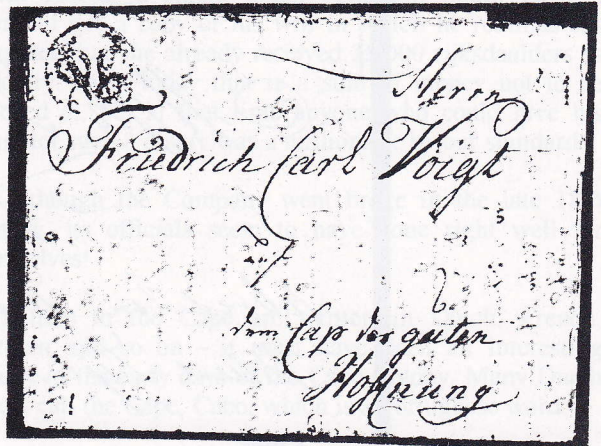 Herrn
Friedrich Carl Voigt
auf
dem Cap der guten
Hoffnung